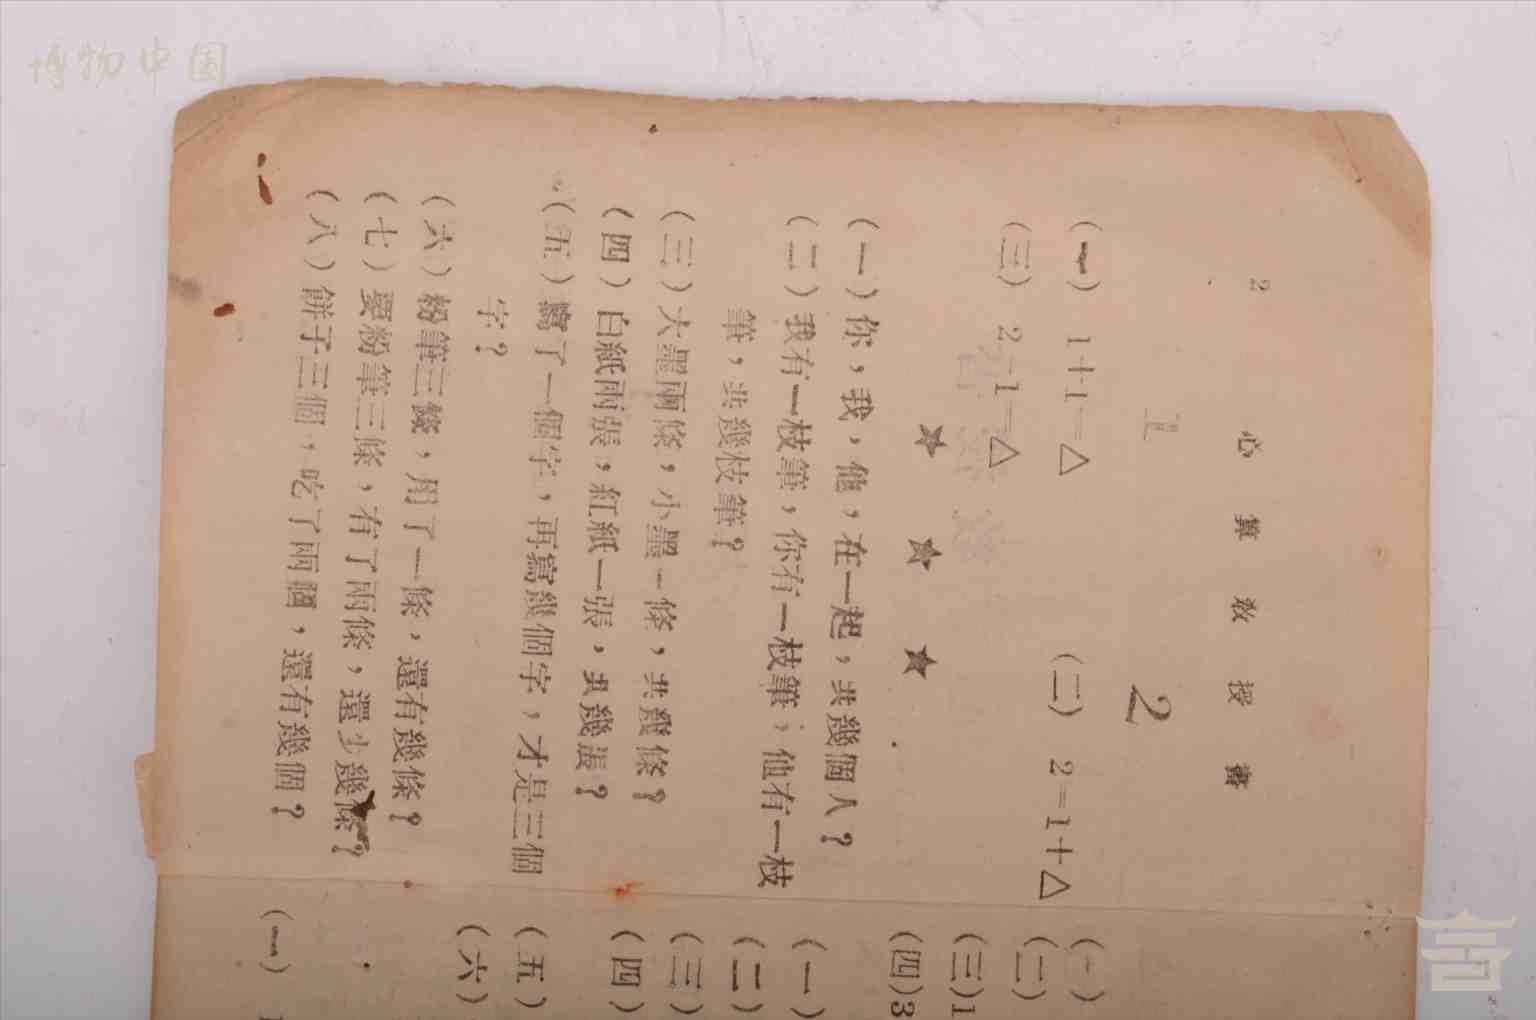 博物中国
2 心算教授書
2
(一) 1+1=△ (二) 2=1+△
(三) 2-1=△
★ ★ ★
(一)你,我,他,在一起,共幾個人?
(二)我有一枝筆,你有一枝筆,他有一枝
筆,共幾枝筆?
(三)大墨兩條,小墨一條,共幾條?
(四)白紙兩張,紅紙一張,共幾張?
(五)寫了一個字,再寫幾個字,才是三個
字?
(六)粉筆三條,用了一條,還有幾條?
(七)要粉筆三條,有了兩條,還少幾條?
(八)餅子三個,吃了兩個,還有幾個?
(一)
(二)
(三)1
(四)3
(一)
(二)
(三)
(四)
(五)
(六)
(一)